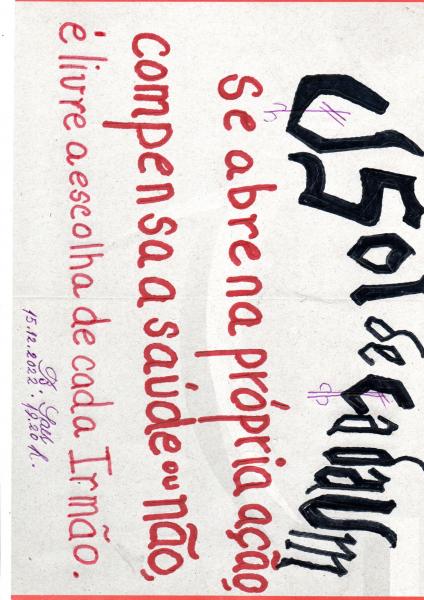 USol de CadaUm
se abre na própria ação,
compensa a saúde ou não,
é livre a escolha de cada Irmão.
15.12.2022.
19:20 h.